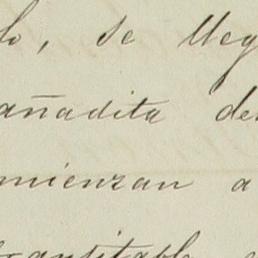 lo, se lleg
añadita de
mienzan a